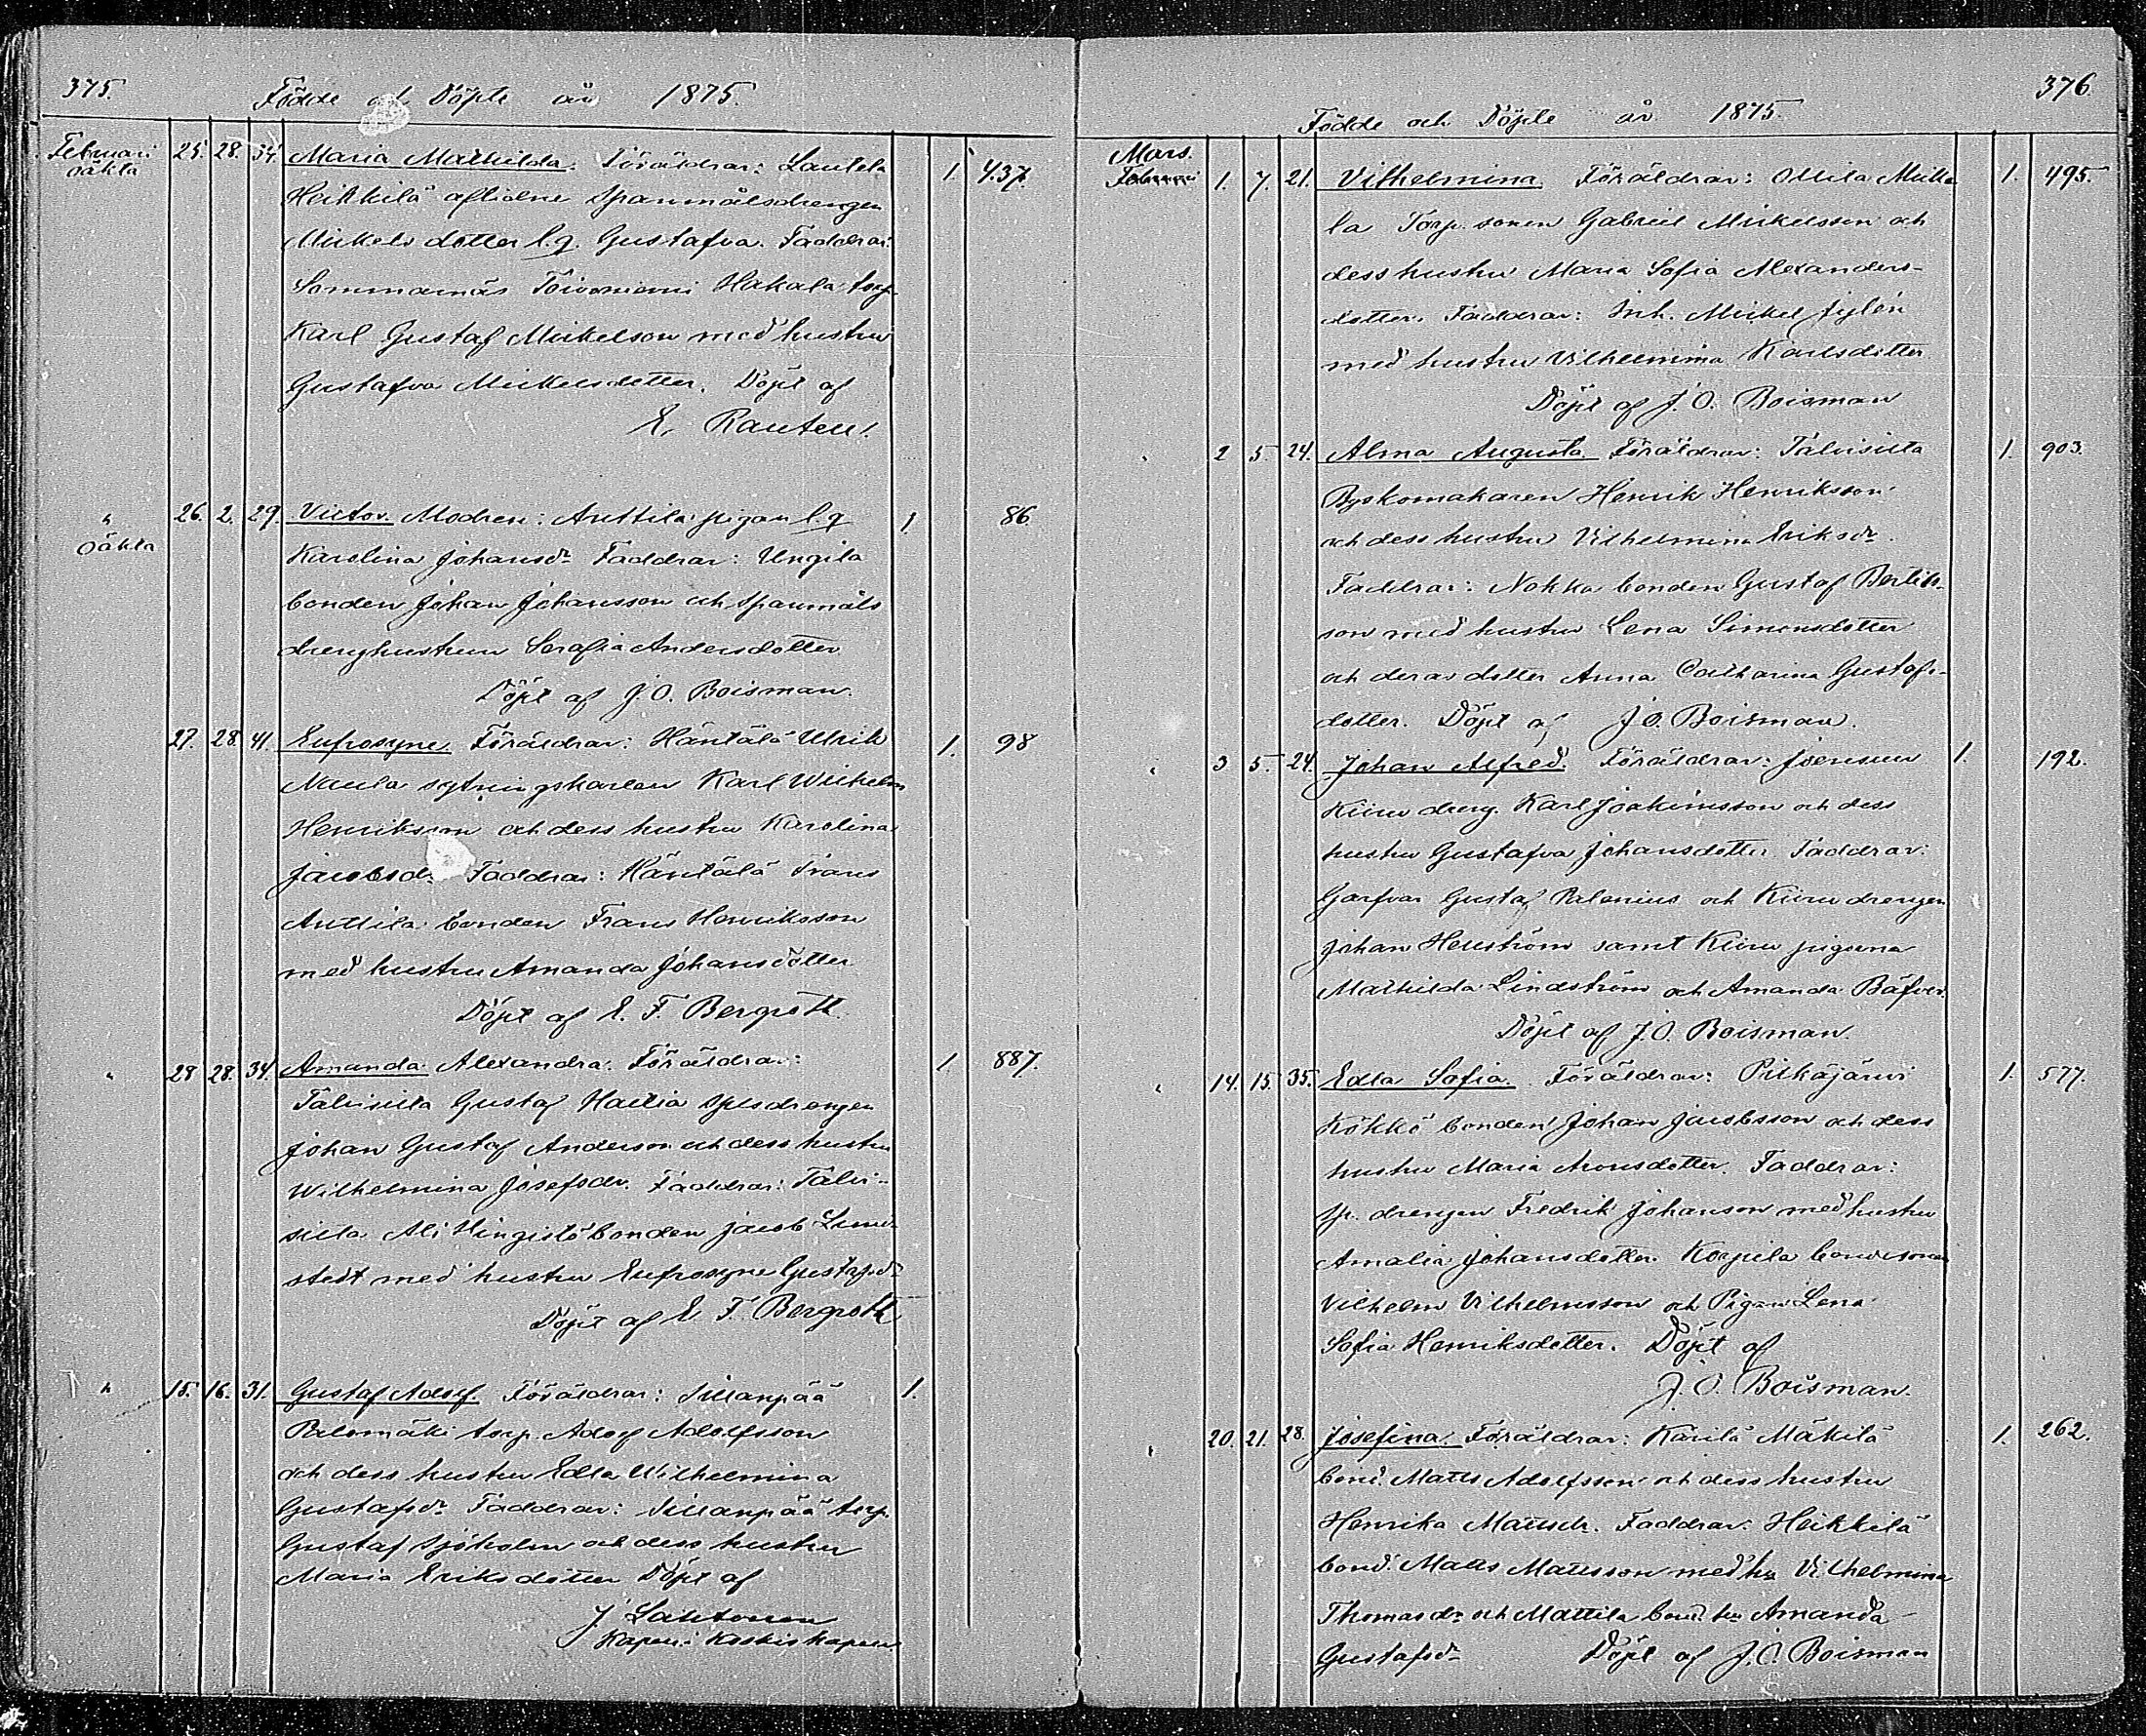 375. Födde och Döpte år 1875.
Februari 25. 28. 34. Maria Mathilda. Föräldrar: Lautela 1. 437.
oäkta Heikkilä aflidne Spanmålsdrengen
Mickels dotter l.q. Gustafva. Faddrar:
Sommarnäs Toivoniemi Hakala torp.
Karl Gustaf Mickelson med hustru
Gustafva Mickelsdotter. Döpt af
E. Rautell.
" 26. 2. 29. Victor. Modren: Anttila pigan l.q 1. 86.
oäkta Karolina Johansdr Faddrar: Ungila
bonden Johan Johansson och spanmåls
dreng hustrun Serafia Andersdotter
Döpt af J. O. Boisman.
27. 28. 41. Eufrosyne. Föräldrar: Häntälä Ulrik 1. 98
Naula sytningskarlen Karl Wilhelm
Henriksson och dess hustru Karolina
Jacobsdr Faddrar: Häntälä Frans
Anttila bonden Frans Henriksson
med hustru Amanda Johansdotter
Döpt af E. F. Bergroth.
" 28 28. 34. Amanda Alexandra. Föräldrar: 1 887.
Talvisilta Gustaf Hailia spsdrengen
Johan Gustaf Anderson och dess hustru
Wilhelmina Josefsdr. Faddrar: Talvi-
silta Ali Hingislö bonden Jacob Lund-
stedt med hustru Eufrosyne Gustafsdr
Döpt af E. F. Bergroth
" 15. 16. 31. Gustaf Adolf. Föräldrar: Sillanpää 1.
Palomäki torp. Adolf Adolfsson
och dess hustru Edla Wilhelmina
Gustafsdr Faddrar: Sillanpää torp.
Gustaf Sjöholm och dess hustru
Maria Eriksdotter Döpt af
J Lahtonen
Kapen i Koskis kapell
376.
Födde och Döpte år 1875.
Mars.
Februari 1. 7. 21. Vilhelmina. Föräldrar: Ollila Mickelä 1. 495.
la Torp. sonen Gabriel Mickelsson och
dess hustru Maria Sofia Alexanders-
dotter. Faddrar: Inh. Mickel Fylén
med hustru Vilhelmina Karlsdotter
Döpt af J. O. Boisman
" 2 5. 24. Alma Augusta. Föräldrar: Talvisilta 1. 903.
Byskomakaren Henrik Henriksson
och dess hustru Vilhelmina Eriksdr.
Faddrar: Nokka bonden Gustaf Bertils-
son med hustru Lena Simonsdotter
och deras dotter Anna Catharina Gustafs-
dotter. Döpt af J. O. Boisman.
" 3 5. 24. Johan Alfred. Föräldrar: Joensuu 1. 192.
Kiiru dreng. Karl Joakimsson och dess
hustru Gustafva Johansdotter Faddrar:
Garfvar Gustaf Palenius och Kiiru drengen
Johan Hellström samt Kiiru pigorna
Mathilda Lindström och Amanda Bäfver.
Döpt af J. O. Boisman.
" 14. 15. 35. Edla Sofia. Föräldrar: Pitkäjärvi 1. 577.
Kökkö bonden Johan Jacobsson och dess
hustru Maria Aronsdotter. Faddrar:
sp. drengen Fredrik Johanson med hustru
Amalia Johansdotter. Korpila bondesonen
Vilhelm Vilhelmsson och Pigan Lena
Sofia Henriksdotter. Döpt af
J. O. Boisman.
" 20. 21. 28. Josefina. Föräldrar: Karilä Mäkilä 1. 262.
bond. Matts Adolfsson och dess hustru
Henrika Mattsdr. Faddrar: Heikkilä
bond. Matts Mattsson med hu Vilhelmina
Thomasdr och Mattila bond. hu Amanda
Gustafsdr Döpt af J. O. Boisman